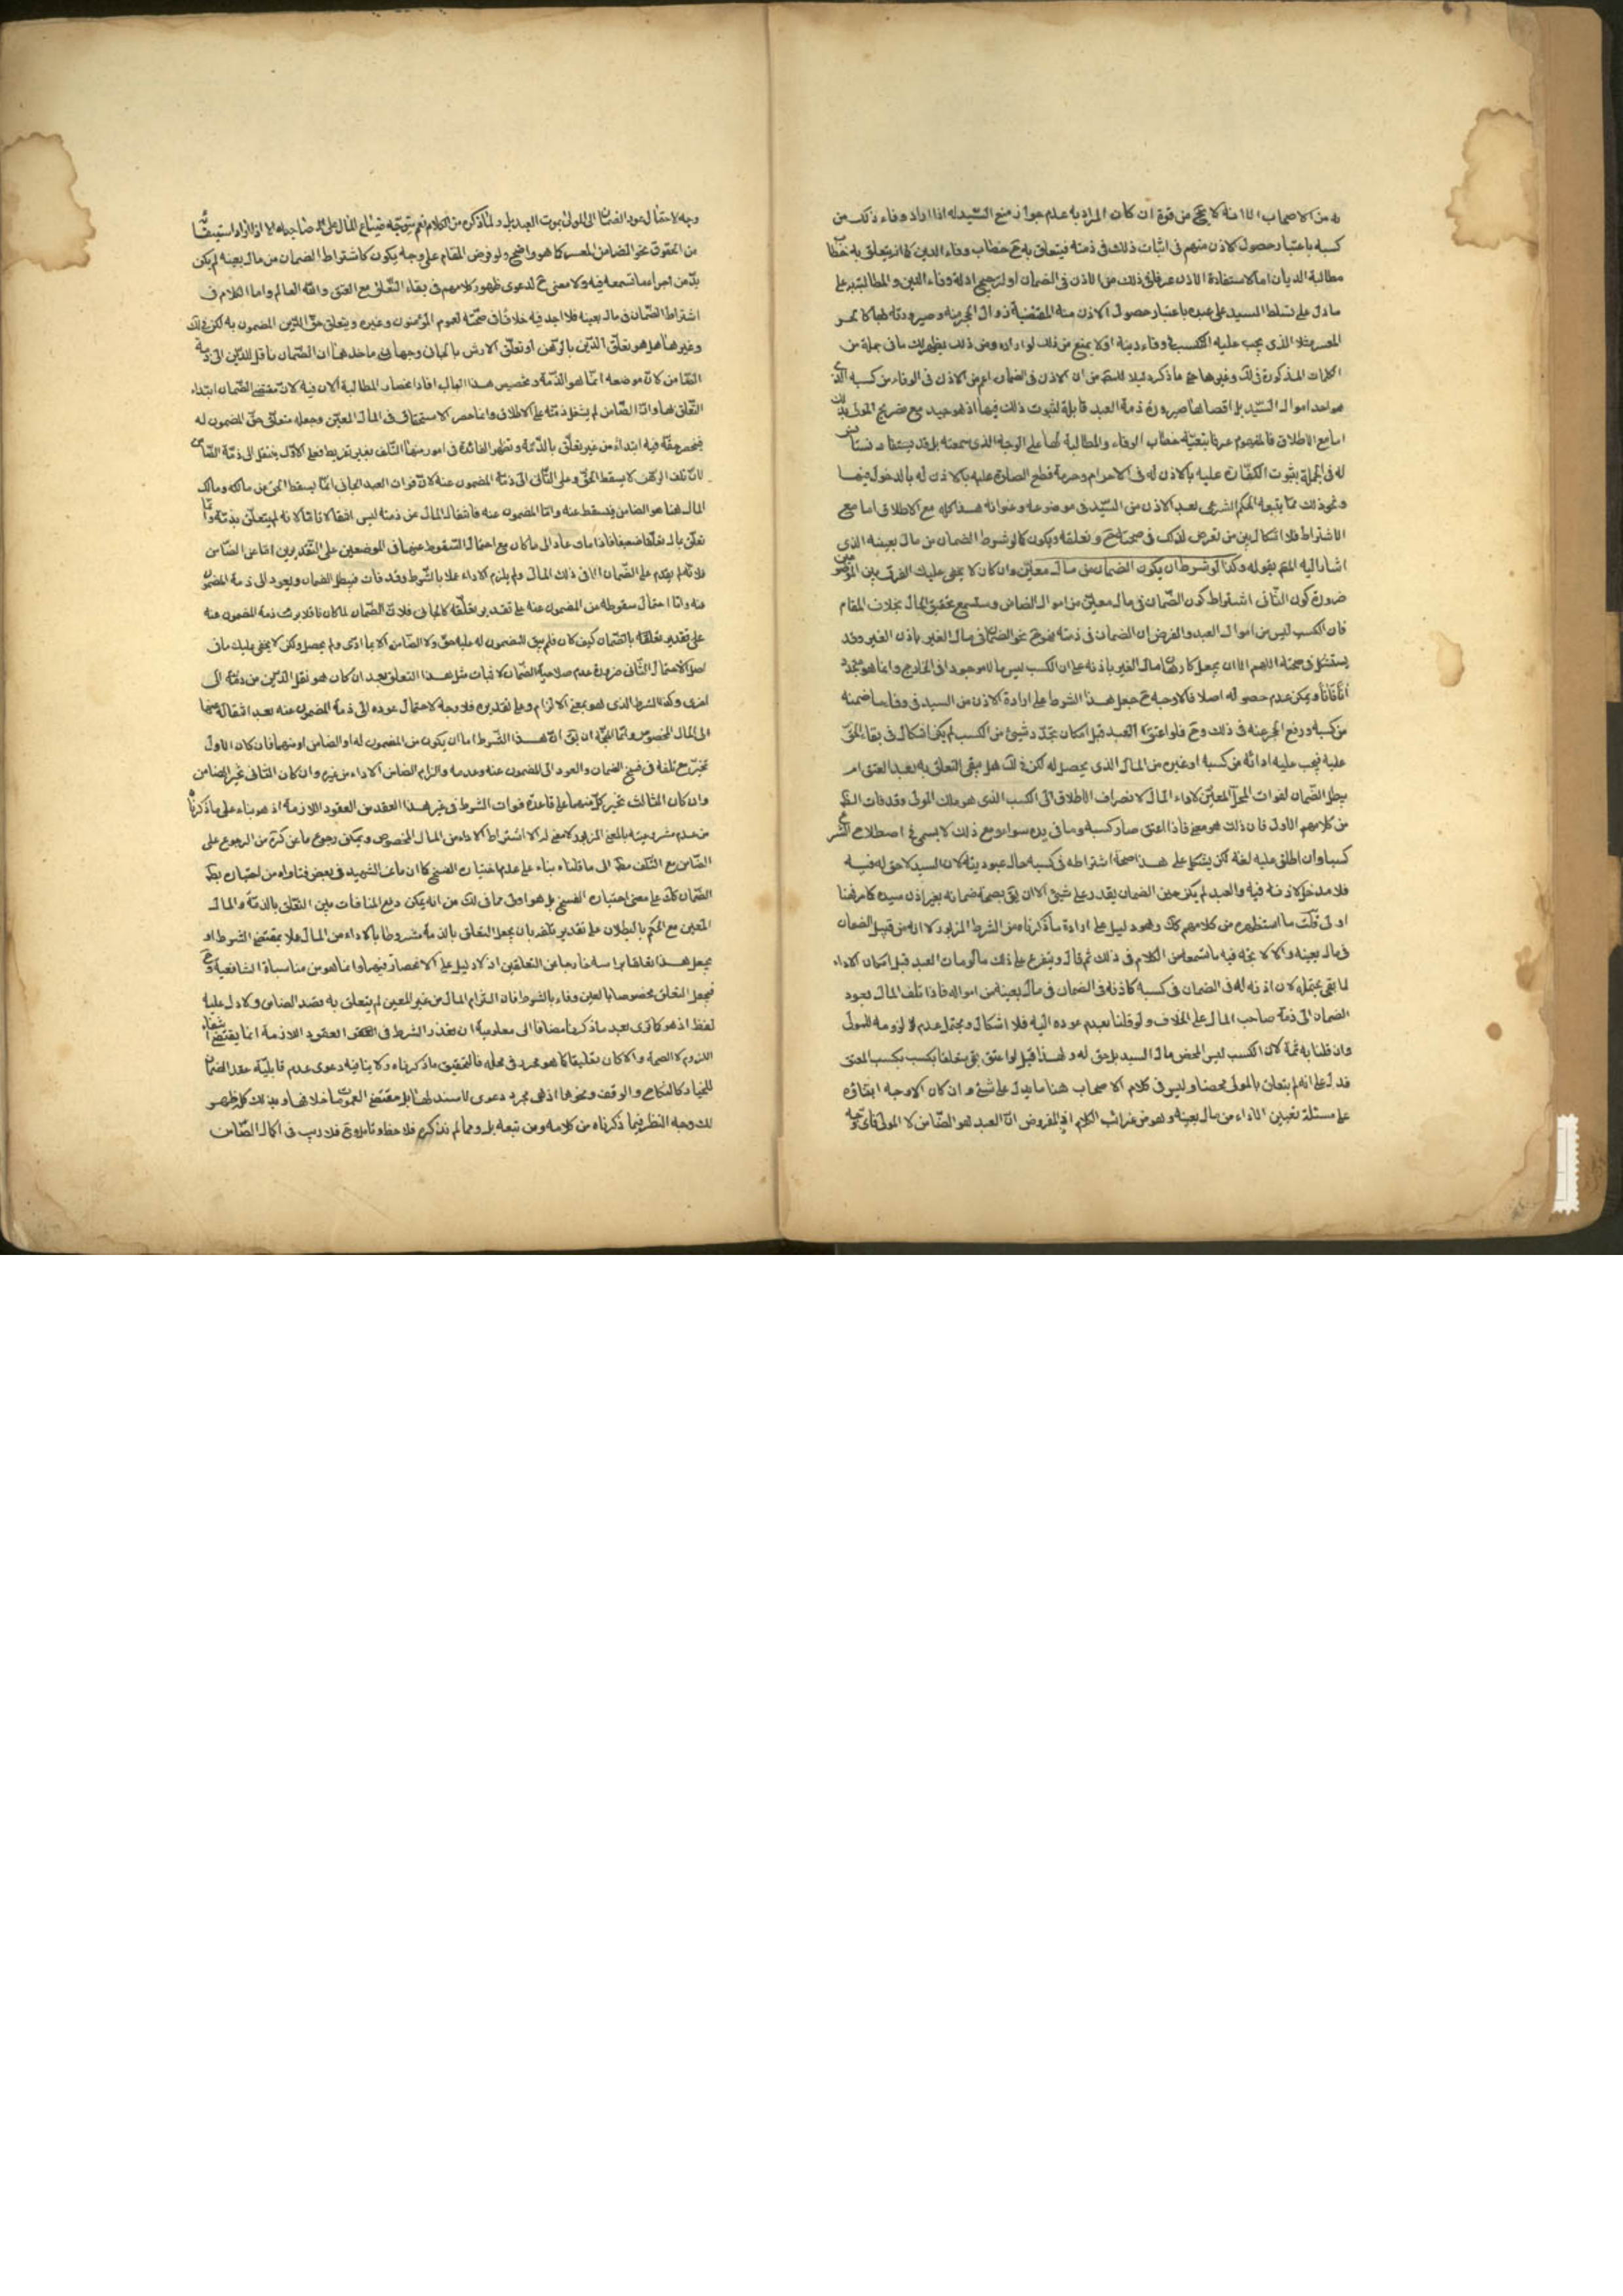 من الاصحاب الا انه لا يخ من قوة ان كان المراد به عدم جواز منع السيد له اذا اراد وفاء ذلك من
كسبه باعتبار حصول الاذن منهم فى اثبات ذلك فى ذمته فيتعلق به ح خطاب وفاء الدين كما انه يتعلق به خطاب
مطالبة الديان اما لاستفادة الاذن عرفا فى ذلك من الاذن فى الضمان او لترجيح ادلة وفاء الدين والمطالبة به على
ما دل على تسلط السيد على عبده باعتبار حصول الاذن منه المقتضية زوال الحجر عنه وصيرورته بها كالحر
المعسر مثلا الذى يجب عليه التكسب لوفاء دينه او لا يمنع من ذلك لو اراده ومن ذلك يظهر لك ما فى جملة من
الكلمات المذكورة فى لك وغيرها حتى ما ذكره دليلا للمتن من ان الاذن فى الضمان اعم من الاذن فى الوفاء من كسبه الذى
هو احد اموال السيد بل اقصاها صيرورة ذمة العبد قابلة لثبوت ذلك فيها اذ هو جيد مع تصريح المولى بذلك
اما مع الاطلاق فالمفهوم عرفا بتبعية خطاب الوفاء والمطالبة لها على الوجه الذى سمعته بل قد يستفاد
له فى الجملة بثبوت الكفارة عليه بالاذن له فى الاحرام وحرمة قطع الصلوة عليه بالاذن له بالدخول فيها
ونحو ذلك مما يتبعه الحكم الشرعى بعد الاذن من السيد فى موضوعه وعنوانه هذا كله مع الاطلاق اما مع
الاشتراط فلا اشكال بين من تعرض لذلك فى صحته ح وتعلقه ويكون كما لو شرط الضمان من مال بعينه الذى
اشار اليه المص بقوله وكذا لو شرط ان يكون الضمان من مال معين وان كان لا يخفى عليك الفرق بين الموضوعين
ضرورة كون الثانى اشتراط كون الضمان فى مال معين من اموال الضامن وستسمع تحقيق الحال بخلاف المقام
فان الكسب ليس من اموال العبد والفرض ان الضمان فى ذمته فهو ح نحو الضمان فى مال الغير باذن الغير وقد
يستشكل فى صحته اللهم الا ان يجعل كارهن مال الغير باذنه على ان الكسب ليس مالا موجودا فى الخارج وانما هو يتجدد
آنا فآنا ويمكن عدم حصوله اصلا فالاوجه ح جعل هذا الشرط على ارادة الاذن من السيد فى وفاء ما ضمنه
من كسبه ورفع الحجر عنه فى ذلك وح فلو اعتق العبد قبل امكان تجدد شىء من الكسب لم يكن اشكال فى بقاء الحق
عليه فيجب عليه ادائه من كسبه او غيره من المال الذى يحصل له لكن فى لك هل يبقى التعلق به بعد العتق ام
يبطل الضمان لفوات المحل المعين لاداء المال لانصراف الاطلاق الى الكسب الذى هو ملك المولى وقد فات الظ
من كلامهم الاول فان ذلك هو معنى فاذا اعتق صار كسبه وما فى يده سواء ومع ذلك لا يسمى فى اصطلاح الشرع
كسبا وان اطلق عليه لغة لكن يشكل على هذا صحة اشتراطه فى كسبه حال عبوديته لان السيد لا حق له فيه
فلا مدخل لاذنه فيه والعبد لم يكن حين الضمان يقدر على شىء الا ان يق بصحة ضمانه بغير اذن سيده كما مر فهنا
اولى قلت ما استظهره من كلامهم كك وهو دليل على ارادة ما ذكرناه من الشرط المزبور لا انه من قبيل الضمان
فى مال بعينه والا لاتجه فيه ما ستسمعه من الكلام فى ذلك ثم قال ويتفرع على ذلك ما لو مات العبد قبل امكان الاداء
لما بقى يحتمله لان اذنه له فى الضمان فى كسبه كاذنه فى الضمان فى مال بعينه من امواله فاذا تلف المال يعود
الضمان الى ذمة صاحب المال على الخلاف ولو قلنا بعدم عوده اليه فلا اشكال ويحتمل عدم لزومه للمولى
وان قلنا به ثمة لان الكسب ليس المحض مال السيد بل حق له ولهذا قيل لو اعتق بقى متعلقا بكسب المعتق
فدل على انه لم يتعلق بالمولى محضا وليس فى كلام الاصحاب هنا ما يدل على شىء وان كان الاوجه ابتناؤه
على مسئلة تعيين الاداء من مال بعينه وهو من غرائب الكلام اذ المفروض ان العبد هو الضامن لا المولى فاى وجه
وجه لاحتمال عود الضمان الى المولى بموت العبد بل ولما ذكره من الكلام نعم يتوجه ضياع المال على المضمون له الا اذا
من الحقوق نحو الضامن المعسر كما هو واضح ولو فرض المقام على وجه يكون كاشتراط الضمان من مال بعينه لم يكن
بد من اجراء ما تسمعه فيه ولا معنى ح لدعوى ظهور كلامهم فى بقاء التعلق مع العتق والله العالم واما الكلام فى
اشتراط الضمان فى مال بعينه فلا اجد فيه خلافا فى صحته لعموم المؤمنون وغيره ويتعلق حق الدين المضمون به لكن فى لك
وغيرها هل هو تعلق الدين بالرهن او تعلق الارش بالجانى وجهان ماخذهما ان الضمان ناقل للدين الى ذمة
الضامن لان موضعه انما هو الذمة وتخصيص هذا المال افاد انحصار المطالبة الان فيه لان مقتضى الضمان ابتداء
التعلق بها وان الضامن لم يشغل ذمته على الاطلاق وانما حصر الاستحقاق فى المال المعين وجعله متعلق حق المضمون له
فينحصر حقه فيه ابتداء من غير تعلق بالذمة وتظهر الفائدة فى امور منها التلف بغير تفريط فعلى الاول ينتقل الى ذمة الضامن
لان تلف الرهن لا يسقط الحق وعلى الثانى الى ذمة المضمون عنه لان فوات العبد الجانى انما يسقط الحق عن مالكه ومالك
المال هنا هو الضامن فيسقط عنه واما المضمون عنه فانتقال المال من ذمته ليس انتقالا تاما لانه لم يتعلق بذمة وانما
تعلق بالمال تعلقا ضعيفا فاذا فات عاد الى ما كان مع احتمال السقوط عنهما فى الموضعين على التقديرين اما عن الضامن
فلانه لم يقدم على الضمان الا فى ذلك المال ولم يلزم الاداء عملا بالشرط وقد فات فيبطل الضمان ويعود الى ذمة المضمون
عنه واما احتمال سقوطه عن المضمون عنه على تقدير تعلقه كالجانى فلان الضمان لما كان ناقلا برئت ذمة المضمون عنه
على تقدير تعلقه بالضمان كيف كان فلم يبق للمضمون له عليه حق ولا الضامن الا بما ادى ولم يحصل ولكن لا يخفى عليك ما فى
اصل الاحتمال الثانى ضرورة عدم صلاحية الضمان لاثبات مثل هذا التعلق بعد ان كان هو نقل الدين من ذمة الى
اخرى وكذا الشرط الذى هو بمعنى الالزام وعلى تقديره فلا وجه لاحتمال عوده الى ذمة المضمون عنه بعد انتقاله عنها
الى المال المخصوص وانما المتجه ان يق ان هذا الشرط اما ان يكون من المضمون له او الضامن او منهما فان كان الاول
تخير ح تلفه فى فسخ الضمان والعود الى المضمون عنه وعدمه والزام الضامن الاداء من غيره وان كان الثانى تخير الضامن
وان كان الثالث تخير كل منهما على قاعدة فوات الشرط فى غير هذا العقد من العقود اللازمة اذ هو بناء على ما ذكرنا
من عدم مشروعيته بالمعنى المزبور لا معنى له الا اشتراط الاداء من المال المخصوص ويمكن رجوع ما عن كره من الرجوع على
الضامن مع التلف مط الى ما قلناه بناء على عدم اختيار الفسخ كما ان ما عن الشهيد فى بعض فتاواه من اختيار بطلان
الضمان كك على معنى اختيار الفسخ بل هو اولى مما فى لك من انه يمكن دفع المنافات بين التعلق بالذمة والمال
المعين مع الحكم بالبطلان على تقدير تلفه بان يجعل التعلق بالذمة مشروطا بالاداء من المال عملا بمقتضى الشرط او
يجعل هذا تعلقا براسه خارجا عن التعلقين اذ لا دليل على الانحصار فيهما وانما هو من مناسبات الشافعية
فيجعل التعلق مخصوصا بالعين وفاء بالشرط فان التزام المال من غير المعين لم يتعلق به قصد الضامن ولا دل عليه
لفظ اذ هو كما ترى بعد ما ذكرناه مضافا الى معلومية ان تعذر الشرط فى العقود اللازمة انما يقتضى انتفاء
اللزوم لا الصحة والا كان تعليقا كما هو محرر فى محله فالتحقيق ما ذكرناه ولا ينافيه دعوى عدم قابلية عقد الضمان
للخيار كالنكاح والوقف ونحوها اذ هى مجرد دعوى لا سند لها بل مقتضى العمومات خلافها وبذلك كله يظهر
لك وجه النظر فيما ذكرناه من كلامه ومن تبعه بل ومما لم نذكره فلاحظ وتامل وح فلا ريب فى ان مال الضامن